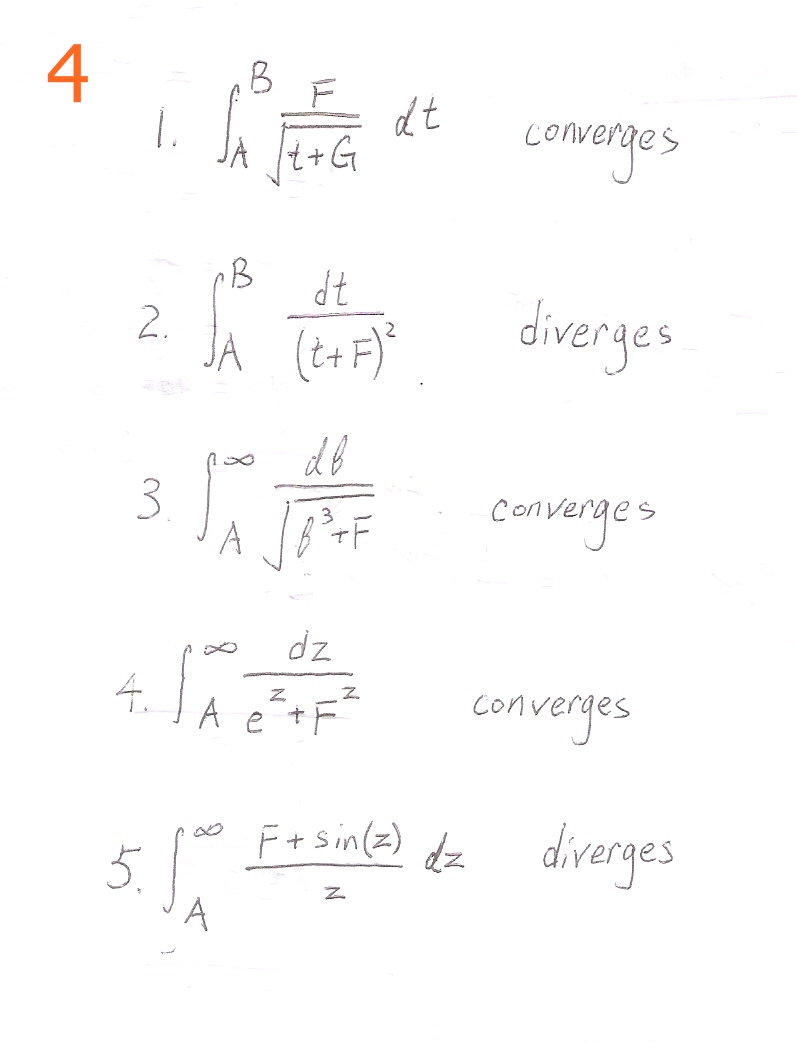 4
1. ∫_A^B F/√(t+G) dt converges
2. ∫_A^B dt/(t+F)² diverges
3. ∫_A^∞ dβ/√(β³+F) converges
4. ∫_A^∞ dz/(e^z+F^z) converges
5. ∫_A^∞ (F+sin(z))/z dz diverges